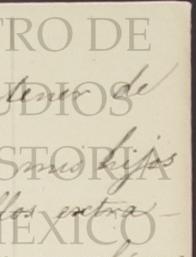 TRO DE
tener de
UDIOS
STORIA
mis hijos
llos extra-
MEXICO